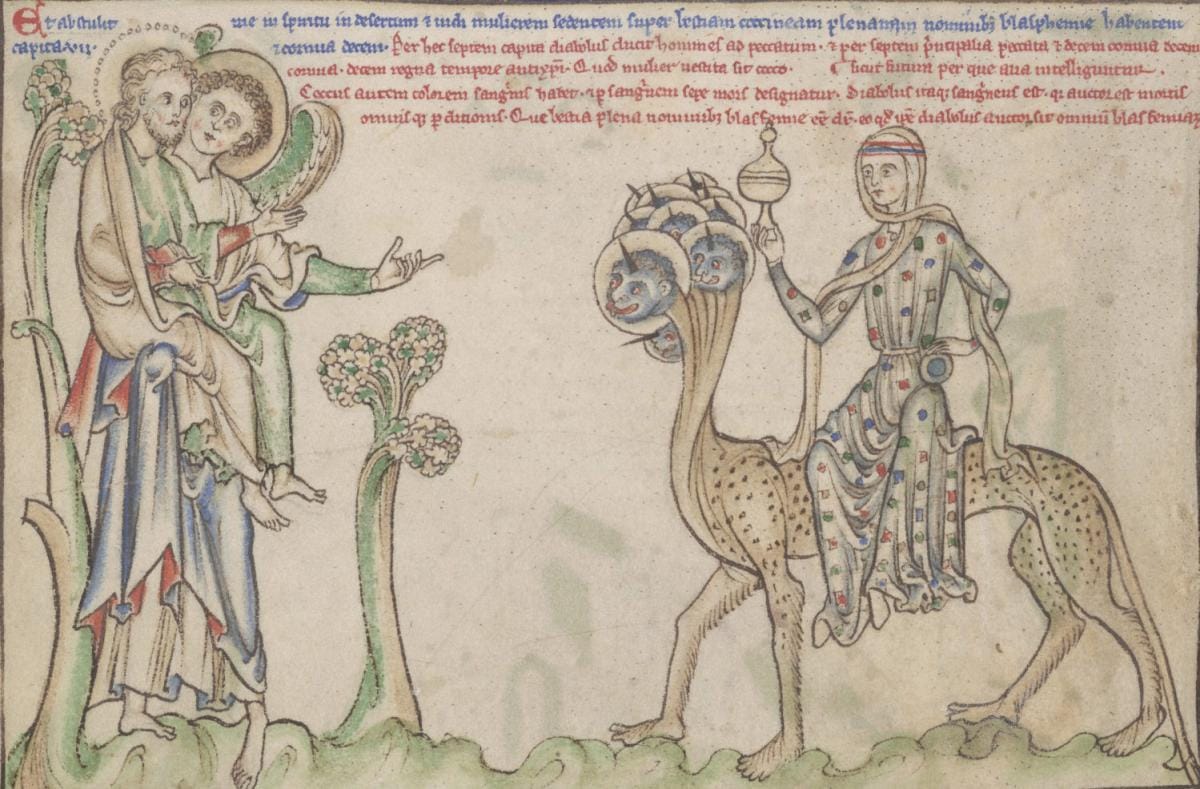 Et abstulit me in spiritu in desertum ⁊ vidi mulierem sedentem super bestiam coccineam plenam nominibꝫ blasphemie habentem
capita·vii· ⁊ cornua decem· Per hec septem capita diabolus ducit homines ad peccatum· ⁊ per septem pͥncipalia peccata ⁊ decem cornua decem
cornua· decem regna tempore antixpͥi· Quod mulier uestita sit cocco· sicut futura per que alia intelliguntur·
Coccus autem colorem sangͥnis habet· ⁊ ꝑ sangͥnem sepe mors designatur· Diabolus itaqꝫ sangͥneus est· qͥ auctor est mortis
omnis qꝫ ꝑditionis· Que bestia plena nominibꝫ blasfemie eo qđ diabolus auctor sit omniū blasfemiaꝝ